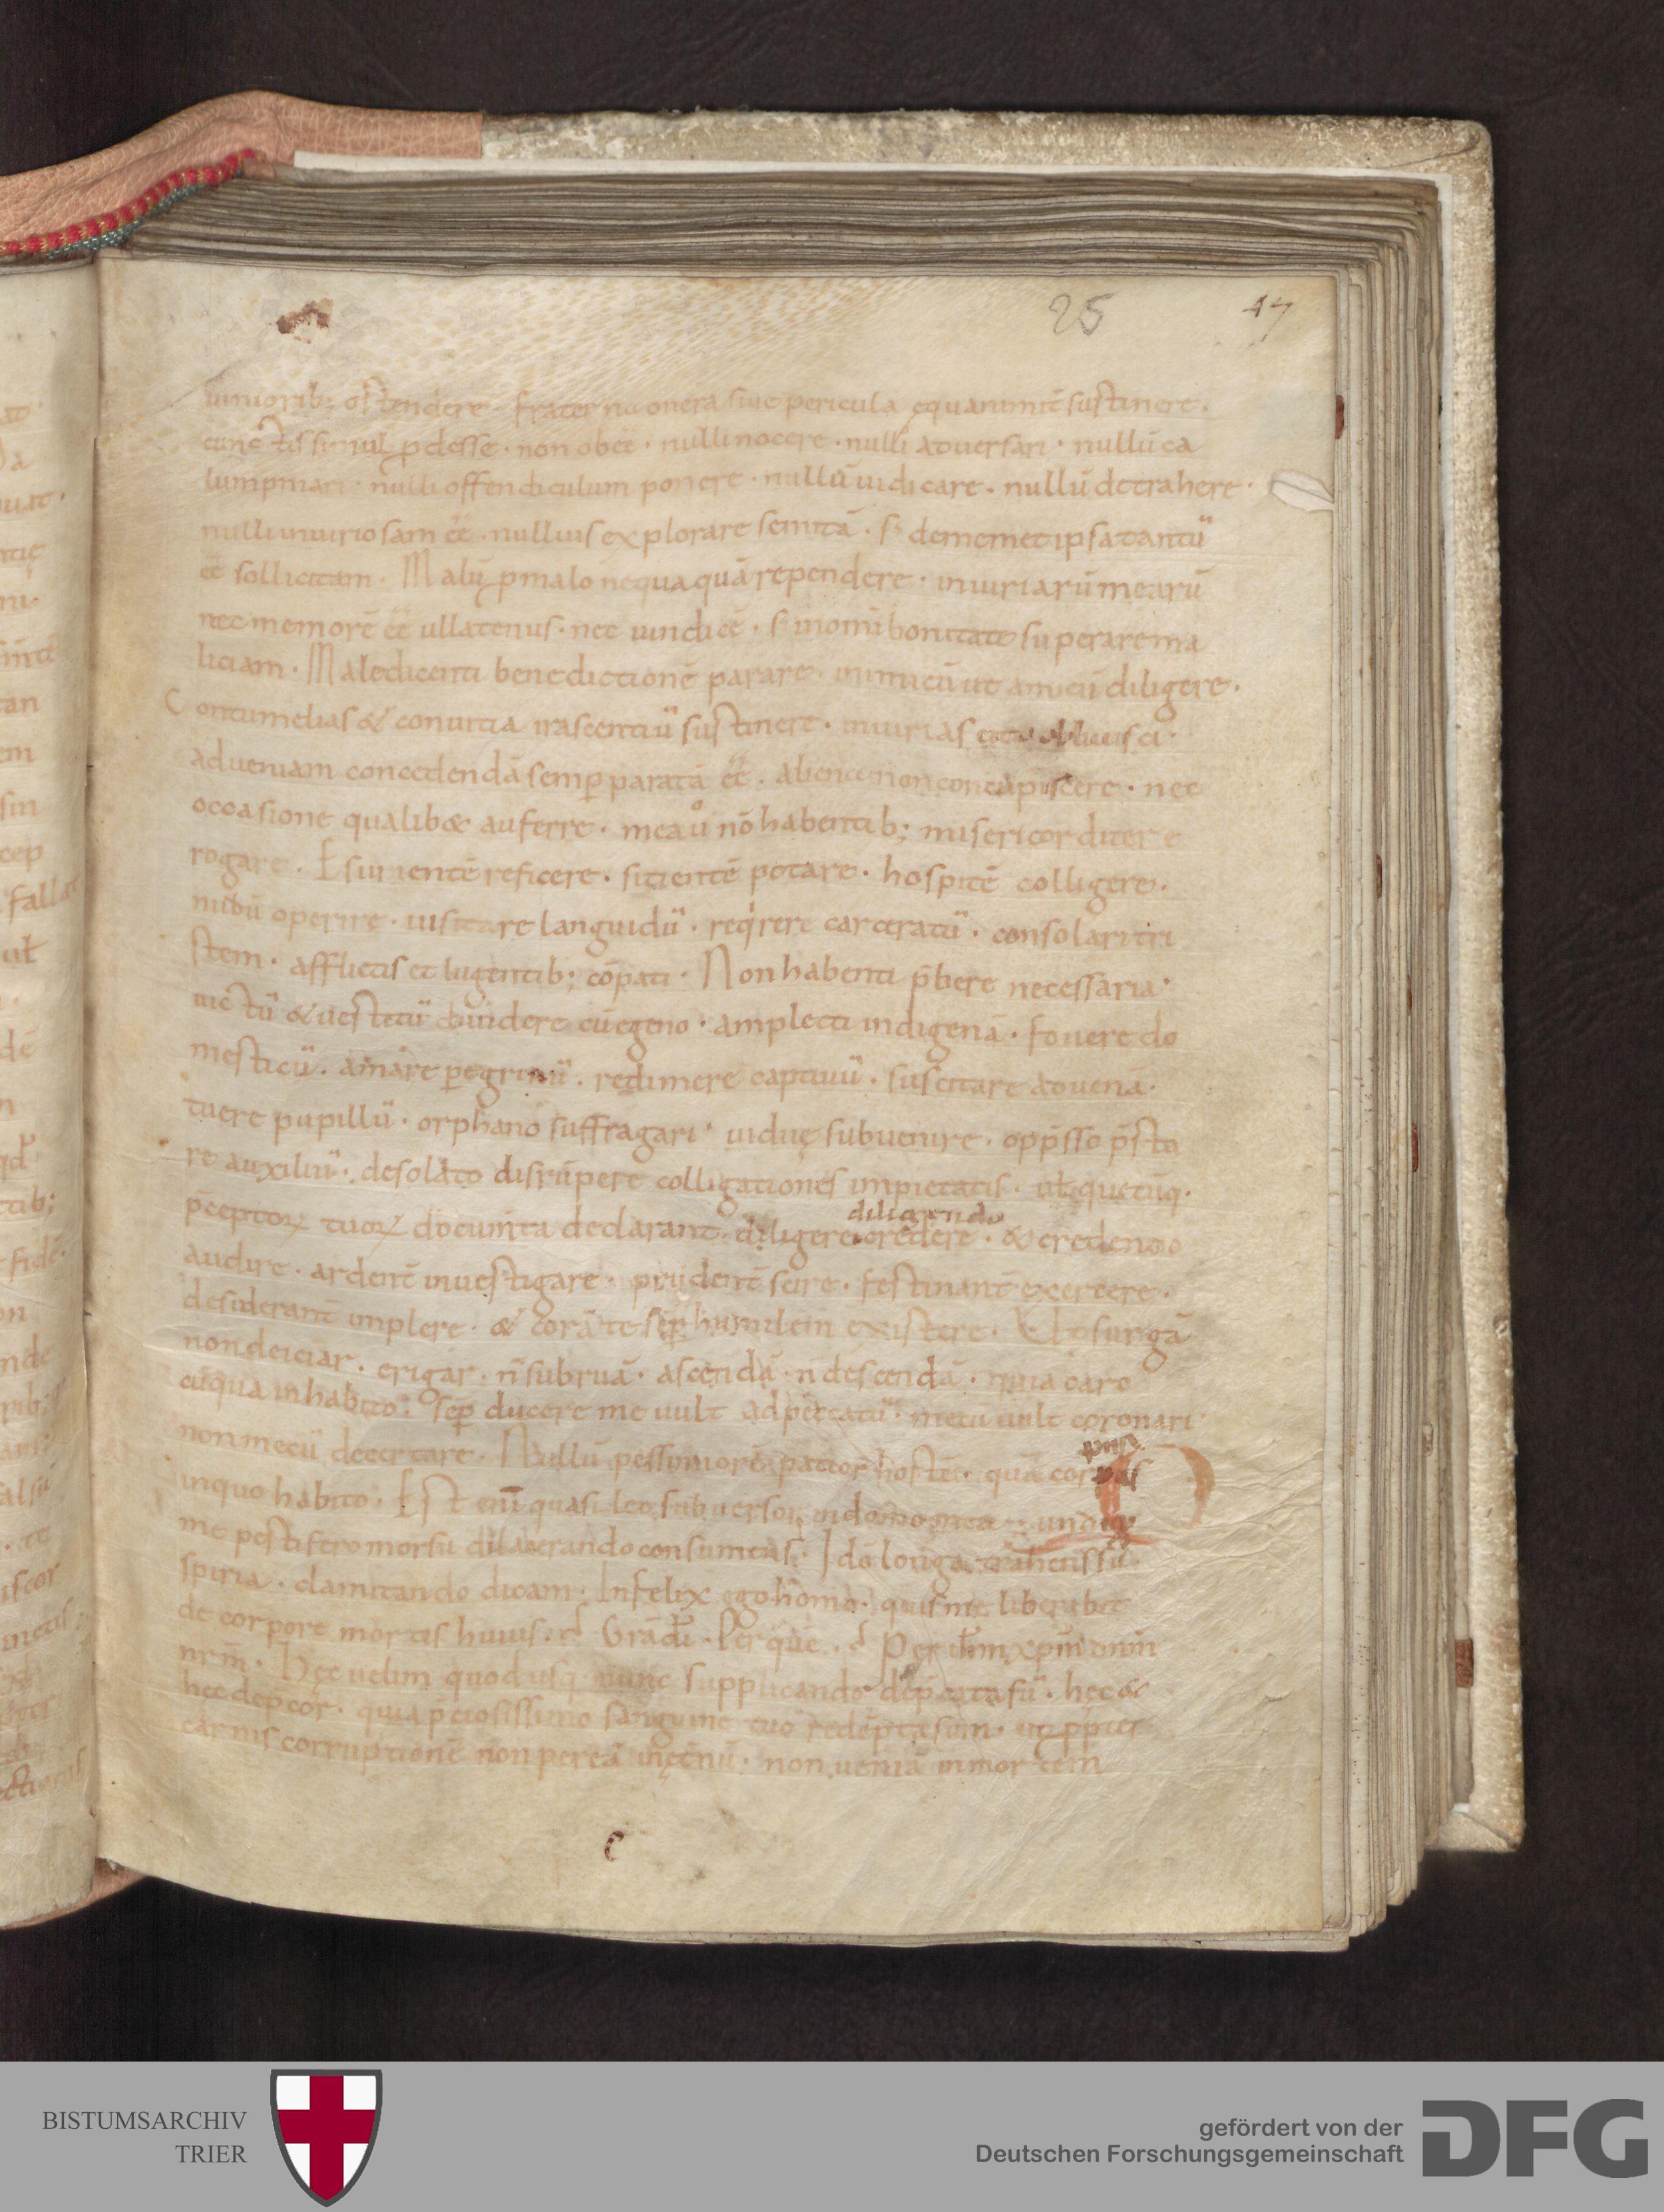 25 47
iuniorib; ostendere · fraterna onera siue pericula ęquanimit̄ sustinere ·
cunctis simul ꝓdesse · non obeē · nulli nocere · nulli aduersari · nullū ca
lumpniari · nulli offendiculum ponere · nullū iudicare · nullū detrahere ·
nulli iniuriosam eē · nullius explorare semitā · s; de memet ipsa tantū
eē sollicitam · Malū ꝓ malo nequaquā rependere · iniuriarū mearū
nec memorē eē ullatenus · nec uindicē · s; in om̄i bonitate superare ma
liciam · Maledicenti benedictionē parare · inimicū ut amicū diligere ·
Contumelias & conuitia irascentiū sustinere · iniurias cito obliuisci ·
ad ueniam concedendā semp̄ paratā eē · aliena non concupiscere · nec
occasione qualib& auferre · mea ů nō habentib; misericordit̄ er
rogare · Esurientē reficere · sitientē potare · hospitē colligere ·
nudū operire · uisitare languidū · reqͥrere carceratū · consolari tri
stem · afflictis et lugentib; cōpati · Non habenti p̄bere necessaria ·
uictū & uestitū diuidere cū egeno · amplecti indigenā · fouere do
mesticū · amare peregrinū · redimere captiuū · suscitare aduenā ·
tuere pupillū · orphano suffragari · uiduę subuenire · opp̄sso p̄sta
re auxiliū · desolato disrūpere colligationes impietatis · ut̄ quęcūq·
p̄ceptoꝝ tuoꝝ docum̄ta declarant · diligere credere · & credendo
diligendo
audire · ardent̄ inuestigare · prudent̄ scire · festinant̄ exercere ·
desiderant̄ implere · & corā te sēp humilem existere · Ut surgā
non deiciar · erigar · n̄ subruā · ascendā · n̄ descendā · quia caro
cū qua inhabito · sēp ducere me uult ad peccatū · mecū uult coronari
non mecū decertare · Nullū pessimiorē patior hostē · quā corpus
in quo habito · Est eni quasi leo subuersor in domo mea · undiq;
me pestifero morsu dilacerando consumens · Idō longa trahens su
spiria · clamitando dicam · Infelix ego homo · quis me liberabit
de corpore mortis huius · Grā dī · Per quē · Per ihm xpm dnm
nrm · Hęc uelim quod usq· nunc supplicando dep̄cata sū · hec &
hec dep̄cor · quia p̄ciosissimo sanguine tuo redēpta sum · ut ꝓpter
carnis corruptionē non pereā in ęt̄nū · non ueniā in mortem
BISTUMSARCHIV
TRIER
gefördert von der
Deutschen Forschungsgemeinschaft
DFG